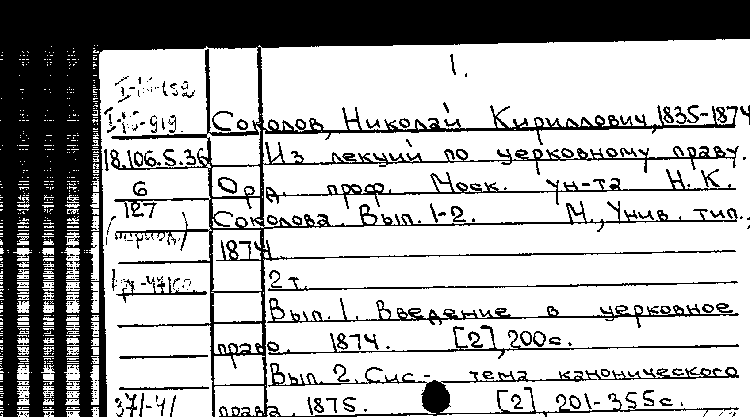 1.
Соколов, Николай Кириллович, 1835-1874
18.106.5.36 Из лекций по церковному праву.
6 Орд. проф. Моск. ун-та Н. К.
127 Соколова. Вып. 1-2. М., Унив. тип.,
(период.)
1874
2 т.
Вып. 1. Введение в церковное
право. 1874. [2], 200с.
Вып. 2. Сис- тема канонического
37/-4/ права. 1875. [2], 201-355с.